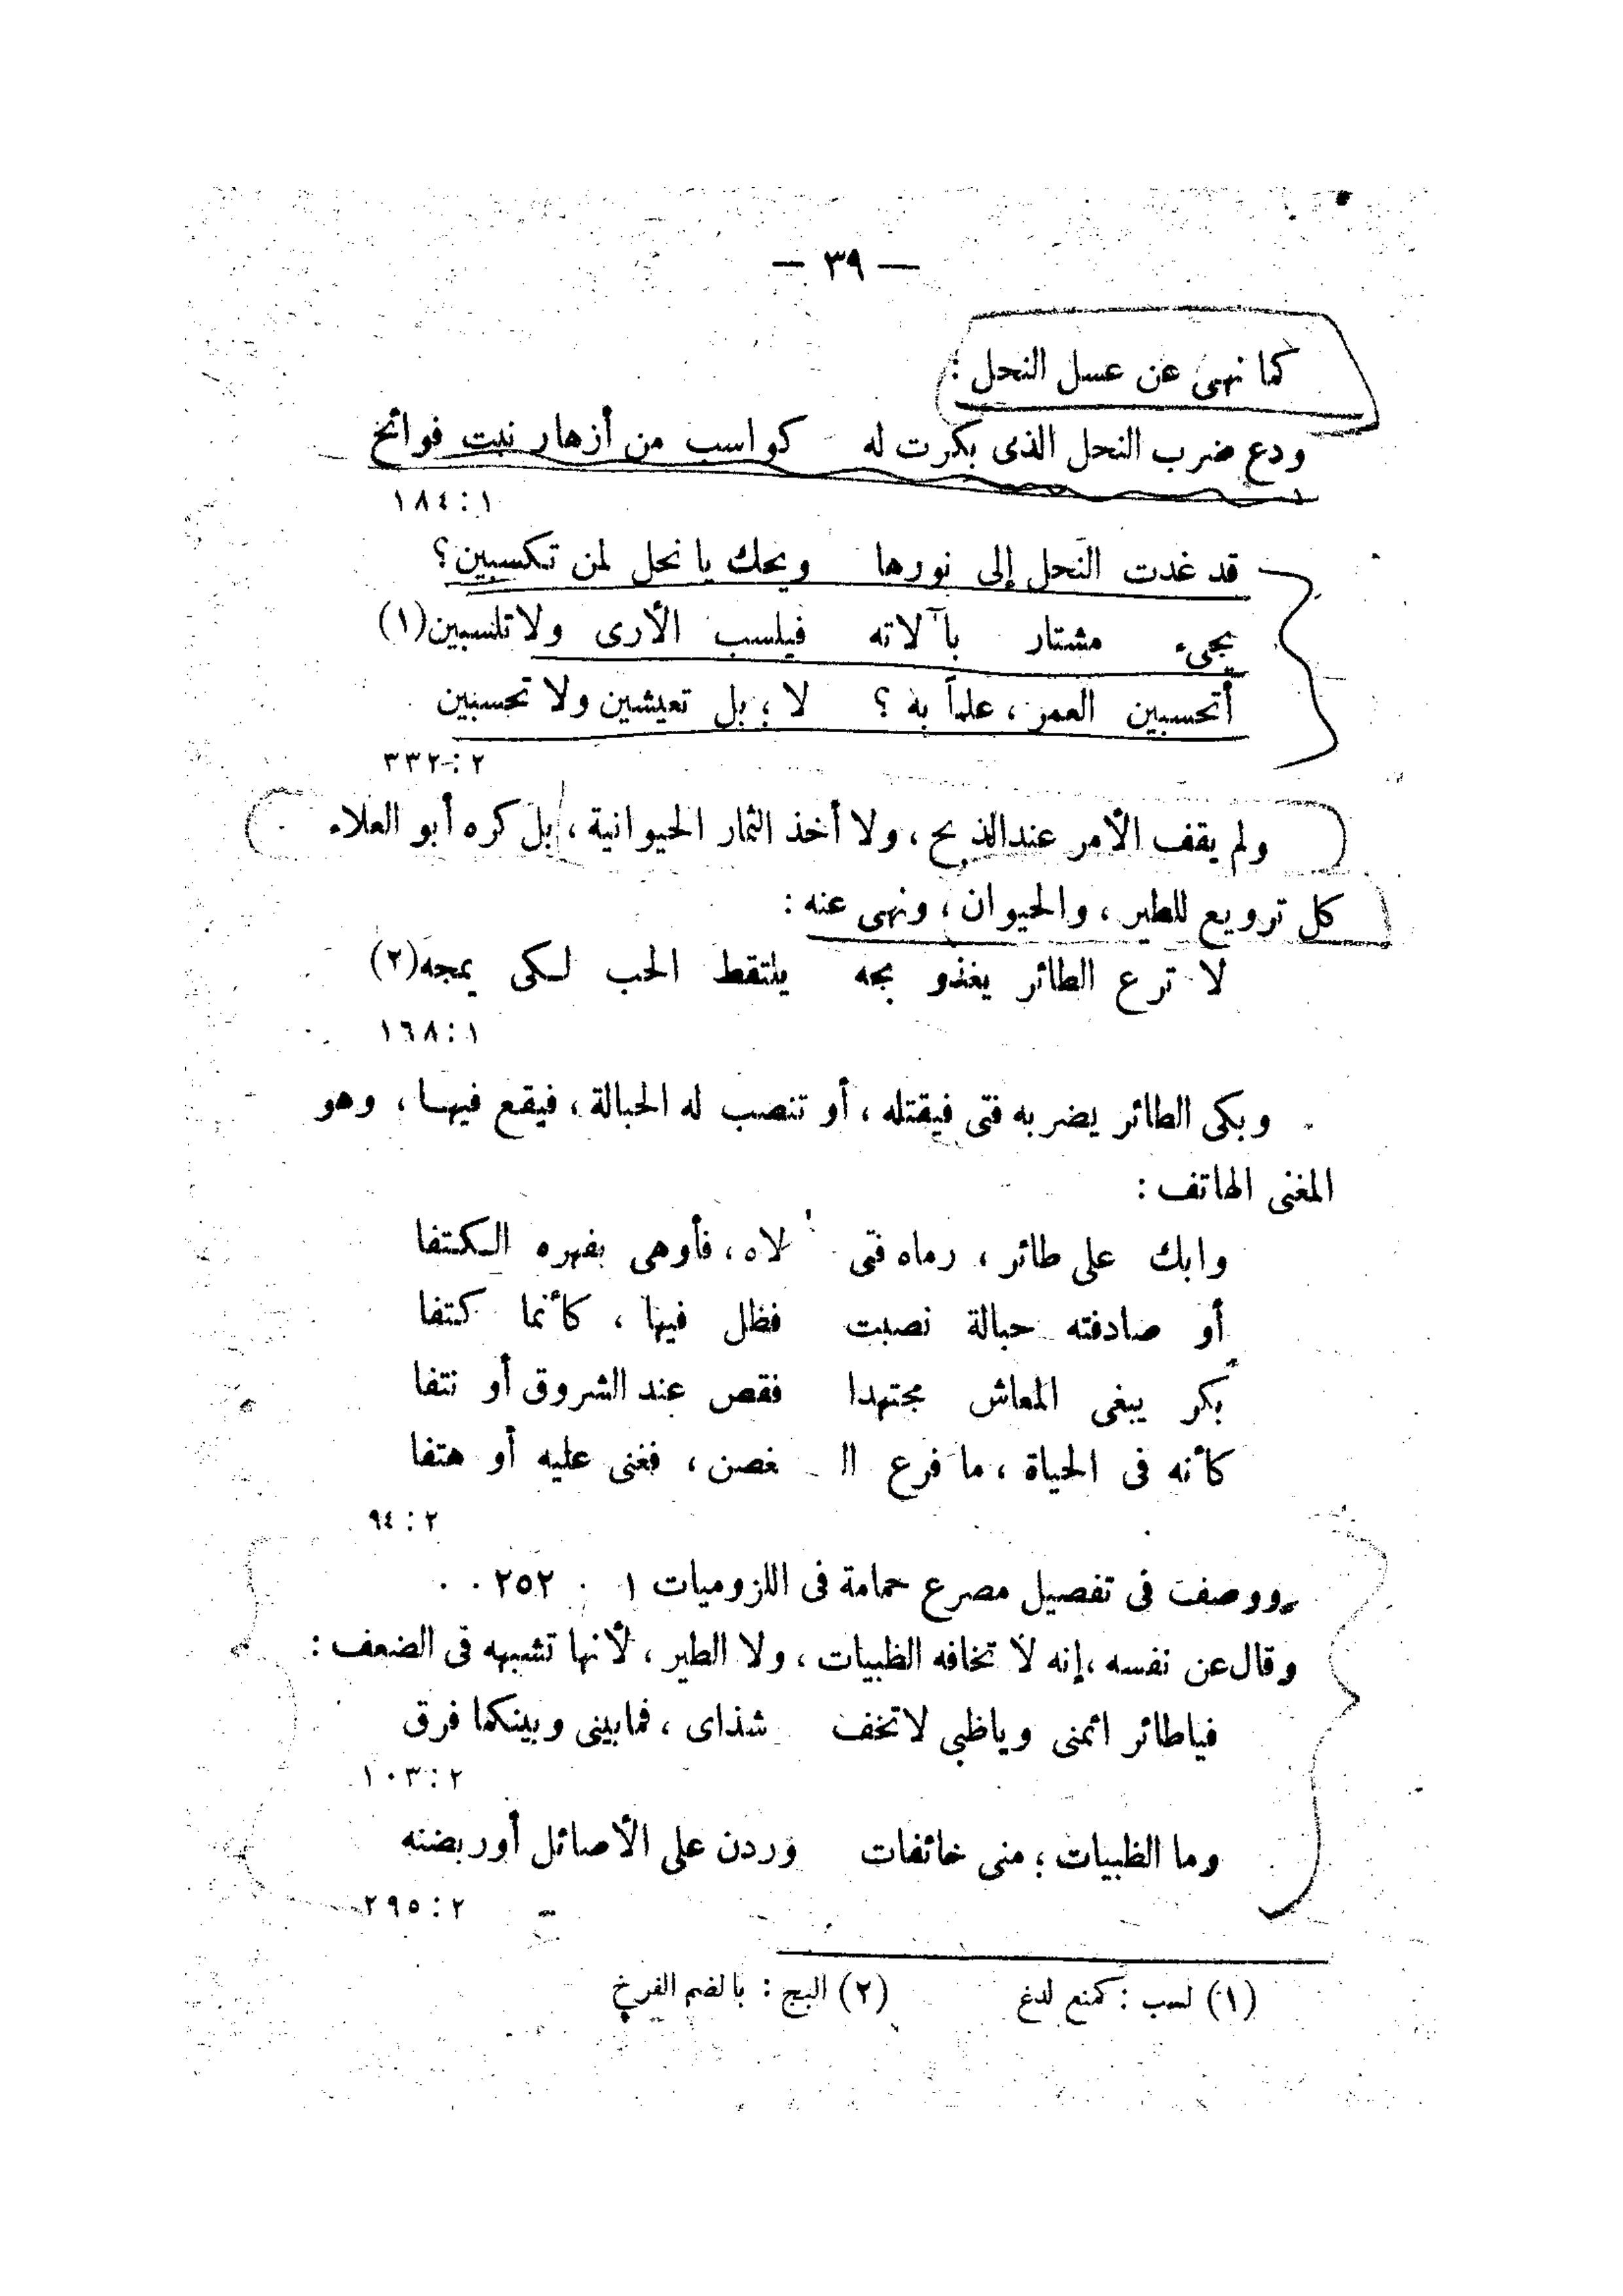 — ٣٩ —
كما نهى عن عسل النحل :
ودع ضرب النحل الذى بكرت له كواسب من أزهار نبت فوائح
١٨٤:١
قد غدت النحل إلى نورها ويحك يا نحل لمن تكسبين؟
يجىء مشتار بآلاته فيلسب الأرى ولا تلسبين(١)
أتحسبين العمر، علماً به ؟ لا ؛ بل تعيشين ولا تحسبين
٣٣٢:٢
ولم يقف الأمر عند الذبح ، ولا أخذ الثمار الحيوانية ، بل كره أبو العلاء
كل ترويع للطير ، والحيوان ، ونهى عنه :
لا ترع الطائر يغذو بجه يلتقط الحب لكى يمجه(٢)
١٦٨:١
وبكى الطائر يضربه فتى فيقتله ، أو تنصب له الحبالة ، فيقع فيها ، وهو
المغنى الهاتف :
وابك على طائر ، رماه فتى لاه ، فأوهى بفهره الكتفا
أو صادفته حبالة نصبت فظل فيها ، كأنما كتفا
بكر يبغى المعاش مجتهدا فقص عند الشروق أو نتفا
كأنه فى الحياة ، ما فرع الـ غصن ، فغنى عليه أو هتفا
٩٤:٢
ووصف فى تفصيل مصرع حمامة فى اللزوميات ١ . ٢٥٢ . .
وقال عن نفسه ، إنه لا تخافه الظبيات ، ولا الطير ، لأنها تشبهه فى الضعف :
فياطائر ائمنى وياظبى لاتخف شذاى ، فمابينى وبينكما فرق
١٠٣:٢
وما الظبيات ؛ منى خائفات وردن على الأصائل أوربضنه
٢٩٥:٢
(١) لسب : كمنع لدغ (٢) البج : بالضم الفرخ